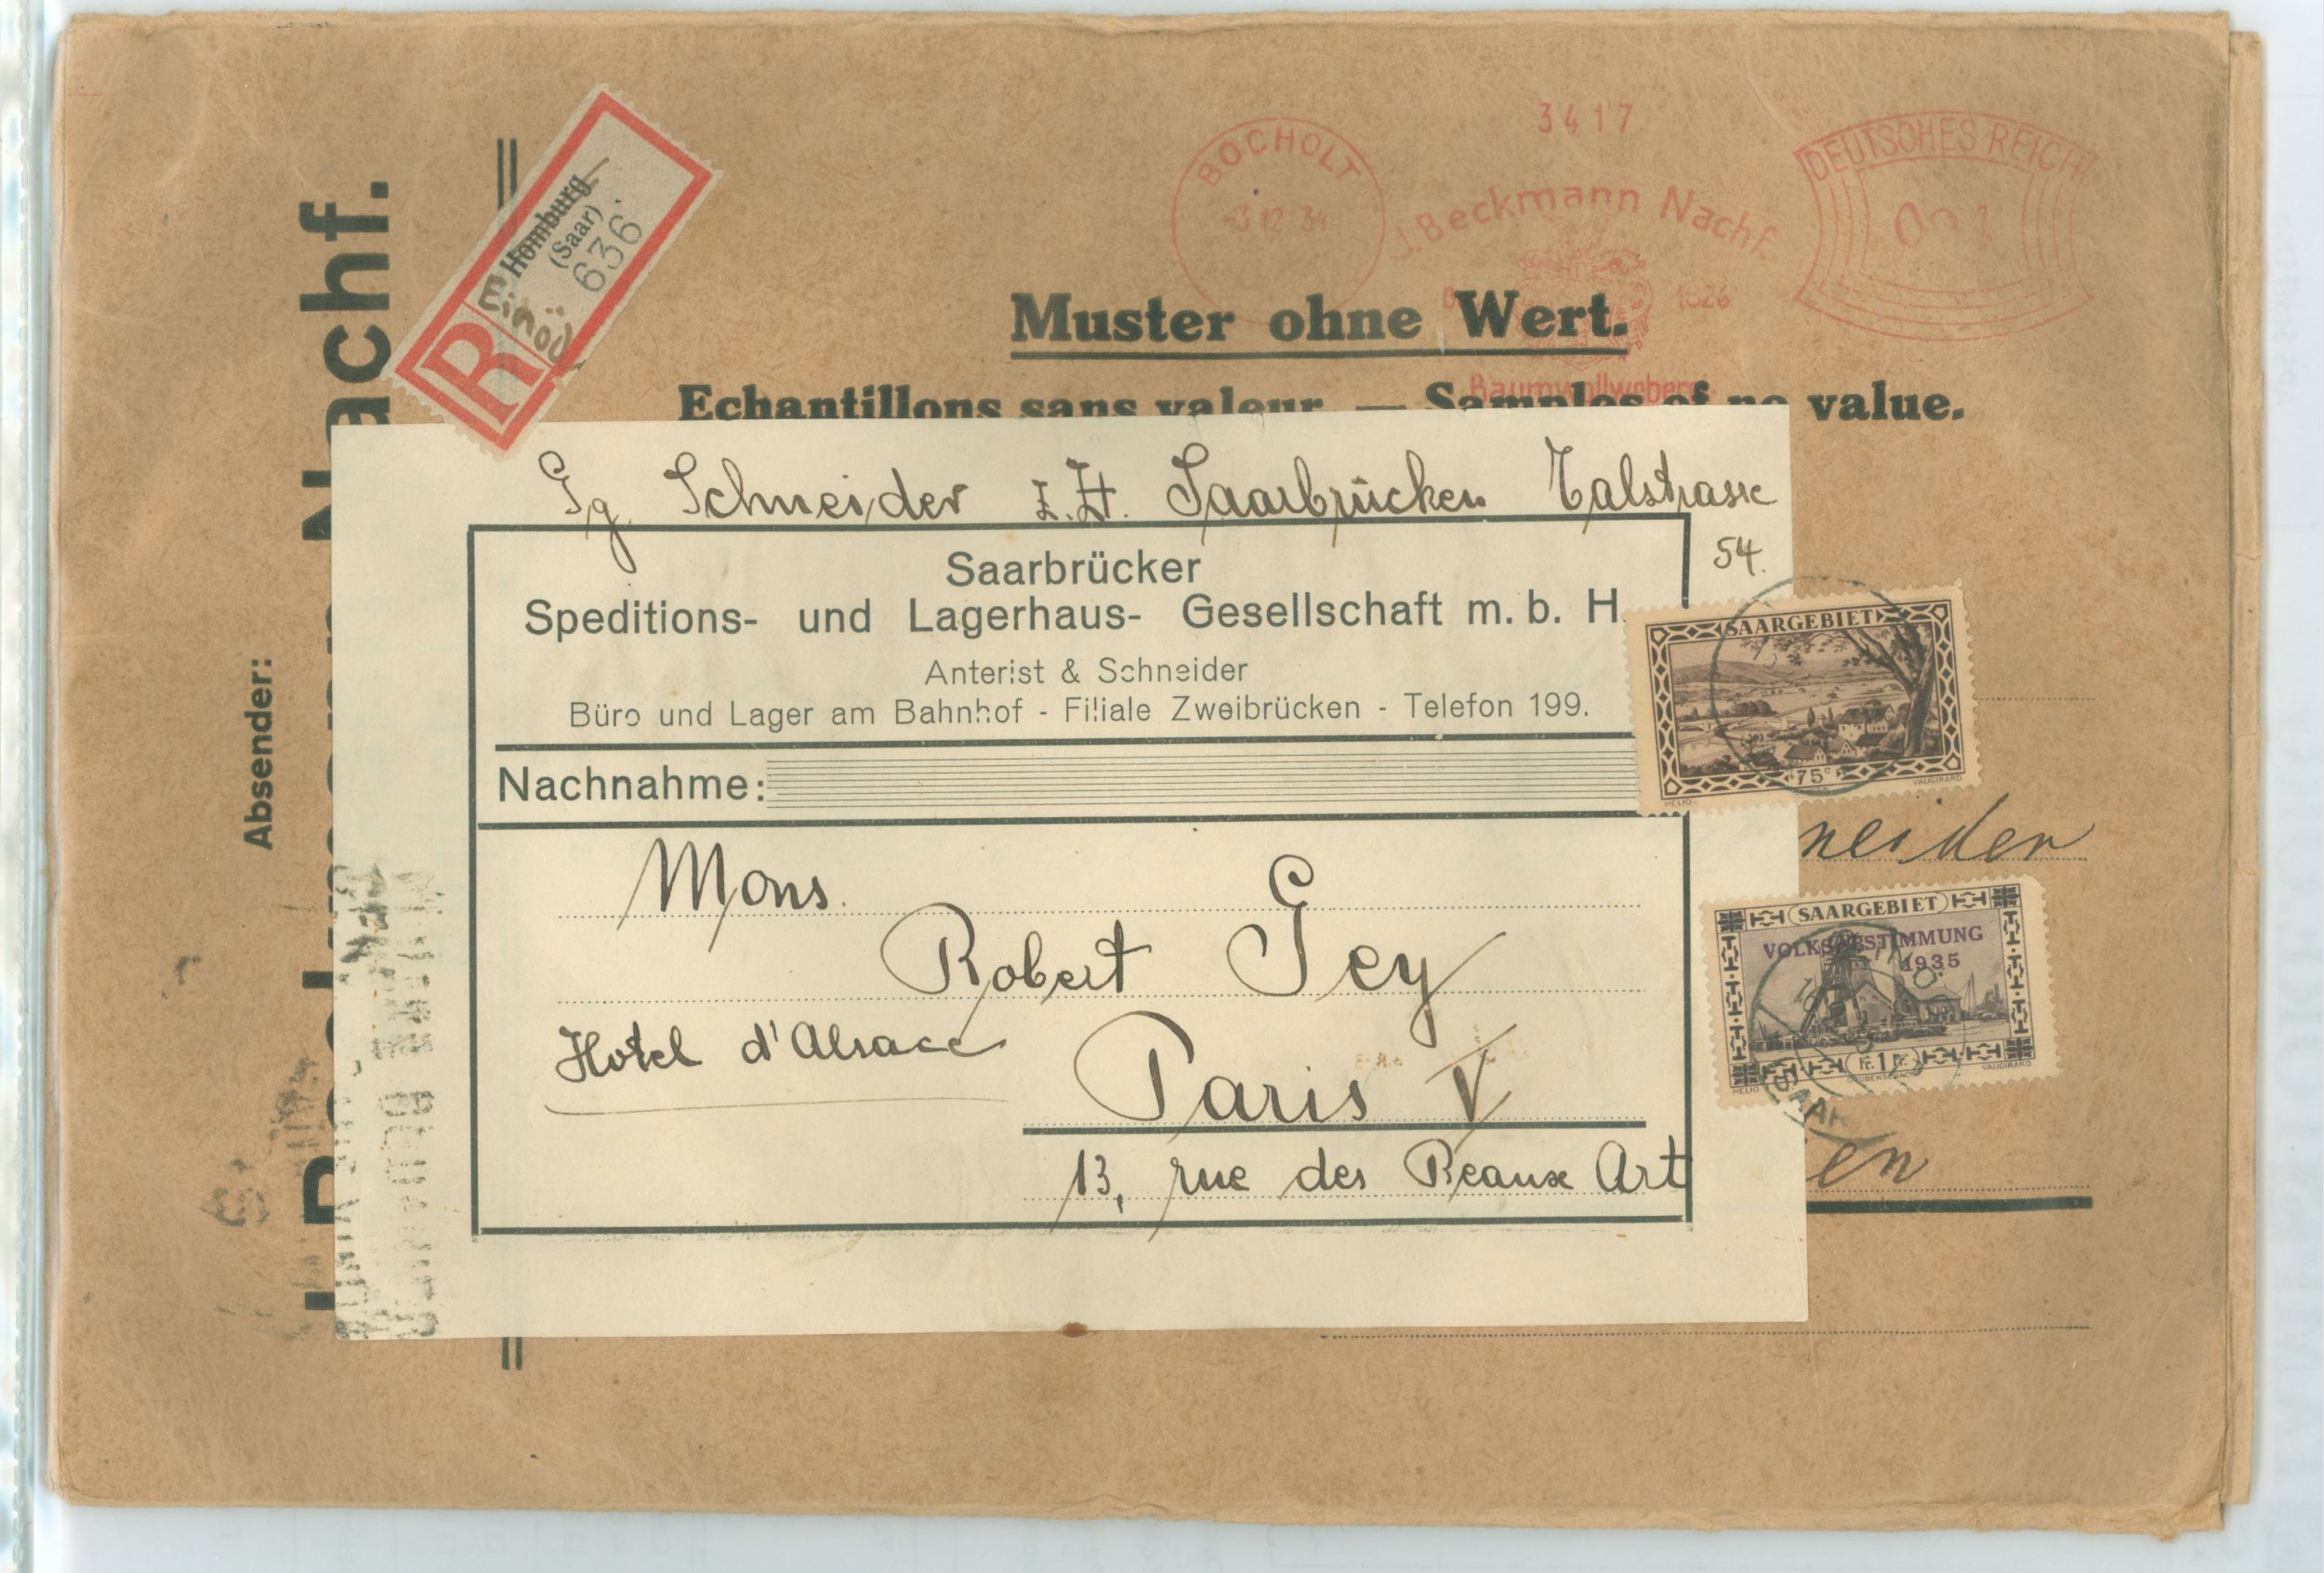 3417
BOCHOLT
-3.12.34
J. Beckmann Nachf.
1826
Baumwollweberei
DEUTSCHES REICH
001
Homburg
(Saar)
636
Einöd
R
Muster ohne Wert.
Echantillons sans valeur. — Samples of no value.
Absender:
Nachf.
Gg Schneider z. Zt. Saarbrücken Talstrasse
54.
Saarbrücker
Speditions- und Lagerhaus- Gesellschaft m. b. H.
Anterist & Schneider
Büro und Lager am Bahnhof - Filiale Zweibrücken - Telefon 199.
Nachnahme:
Mons.
Robert Gey
Hotel d'Alsace
Paris V
13, rue des Beaux Art
SAARGEBIET
75c
HELIO
VAUGIRARD
neider
SAARGEBIET
VOLKSABSTIMMUNG
1935
Fr. 1 Fr.
HELIO
VAUGIRARD
en